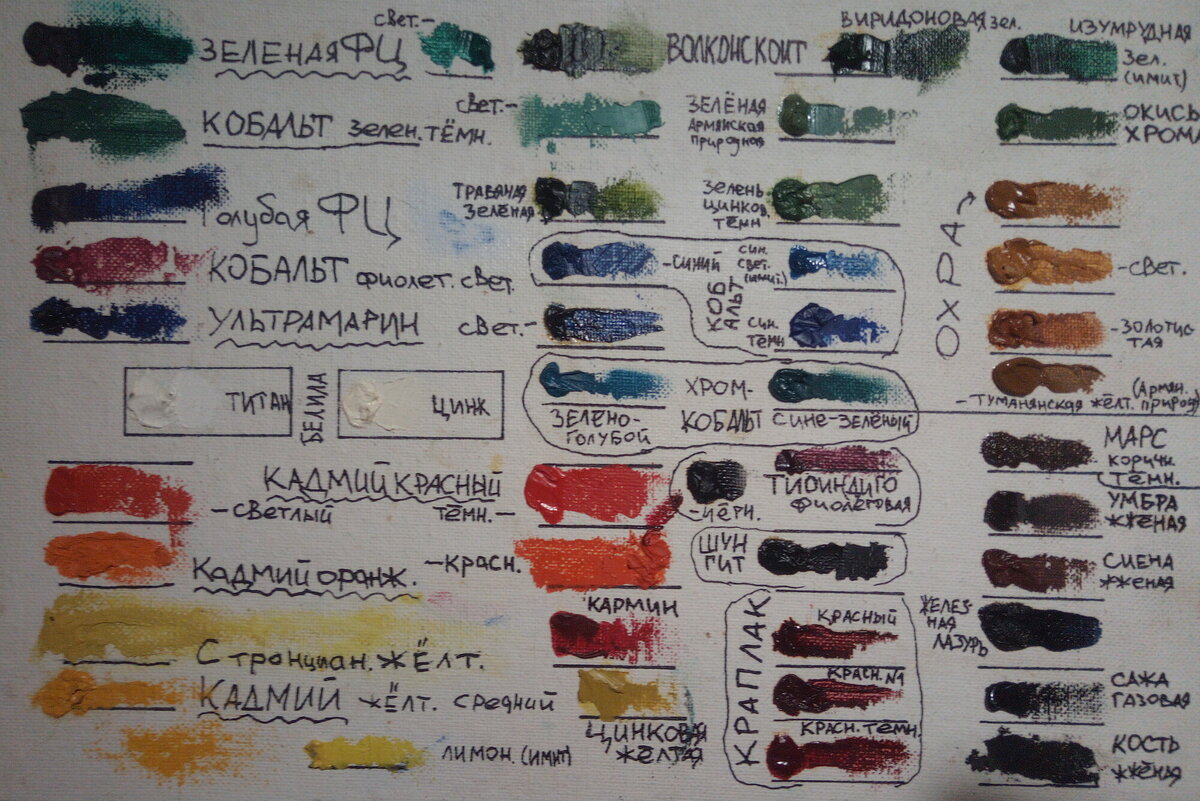 ЗЕЛЕНАЯ ФЦ
свет.-
ВОЛКОНСКОИТ
ВИРИДОНОВАЯ зел.
ИЗУМРУДНАЯ
Зел.
(имит)
КОБАЛЬТ Зелен. ТЁМН.
свет.-
ЗЕЛЁНАЯ
АРМЯНСКАЯ
ПРИРОДНАЯ
ОКИСЬ
ХРОМА
Голубая ФЦ
ТРАВЯНАЯ
ЗЕЛЁНАЯ
ЗЕЛЕНЬ
ЦИНКОВ.
ТЁМН
ОХРА
КОБАЛЬТ фиолет. свет.
-СИНИЙ
КОБ
АЛЬТ
СИН.
СВЕТ.
(ИМИТ.)
-СВЕТ.
УЛЬТРАМАРИН
свет.-
СИН.
ТЕМН
-ЗОЛОТИС
ТАЯ
ТИТАН
БЕЛИЛА
ЦИНК
ЗЕЛЕНО-
ГОЛУБОЙ
ХРОМ-
КОБАЛЬТ
СИНЕ-ЗЕЛЁНЫЙ
-ТУМАНЯНСКАЯ ЖЁЛТ. (Армян.
природ)
КАДМИЙ КРАСНЫЙ
-СВЕТЛЫЙ
ТЁМН.-
-ЧЁРН.
ТИОИНДИГО
ФИОЛЕТОВАЯ
МАРС
КОРИЧН.
ТЁМН.
УМБРА
ЖЖЁНАЯ
КАДМИЙ оранж.
-КРАСН.
ШУН
ГИТ
СИЕНА
ЖЖЕНАЯ
Стронциан. ЖЁЛТ.
КАРМИН
КРАПЛАК
КРАСНЫЙ
ЖЕЛЕЗ-
НАЯ
ЛАЗУРЬ
КАДМИЙ ЖЁЛТ. средний
КРАСН. №1
САЖА
ГАЗОВАЯ
ЦИНКОВАЯ
ЖЁЛТАЯ
КРАСН. ТЁМН.
ЛИМОН. (ИМИТ)
КОСТЬ
ЖЖЁНАЯ